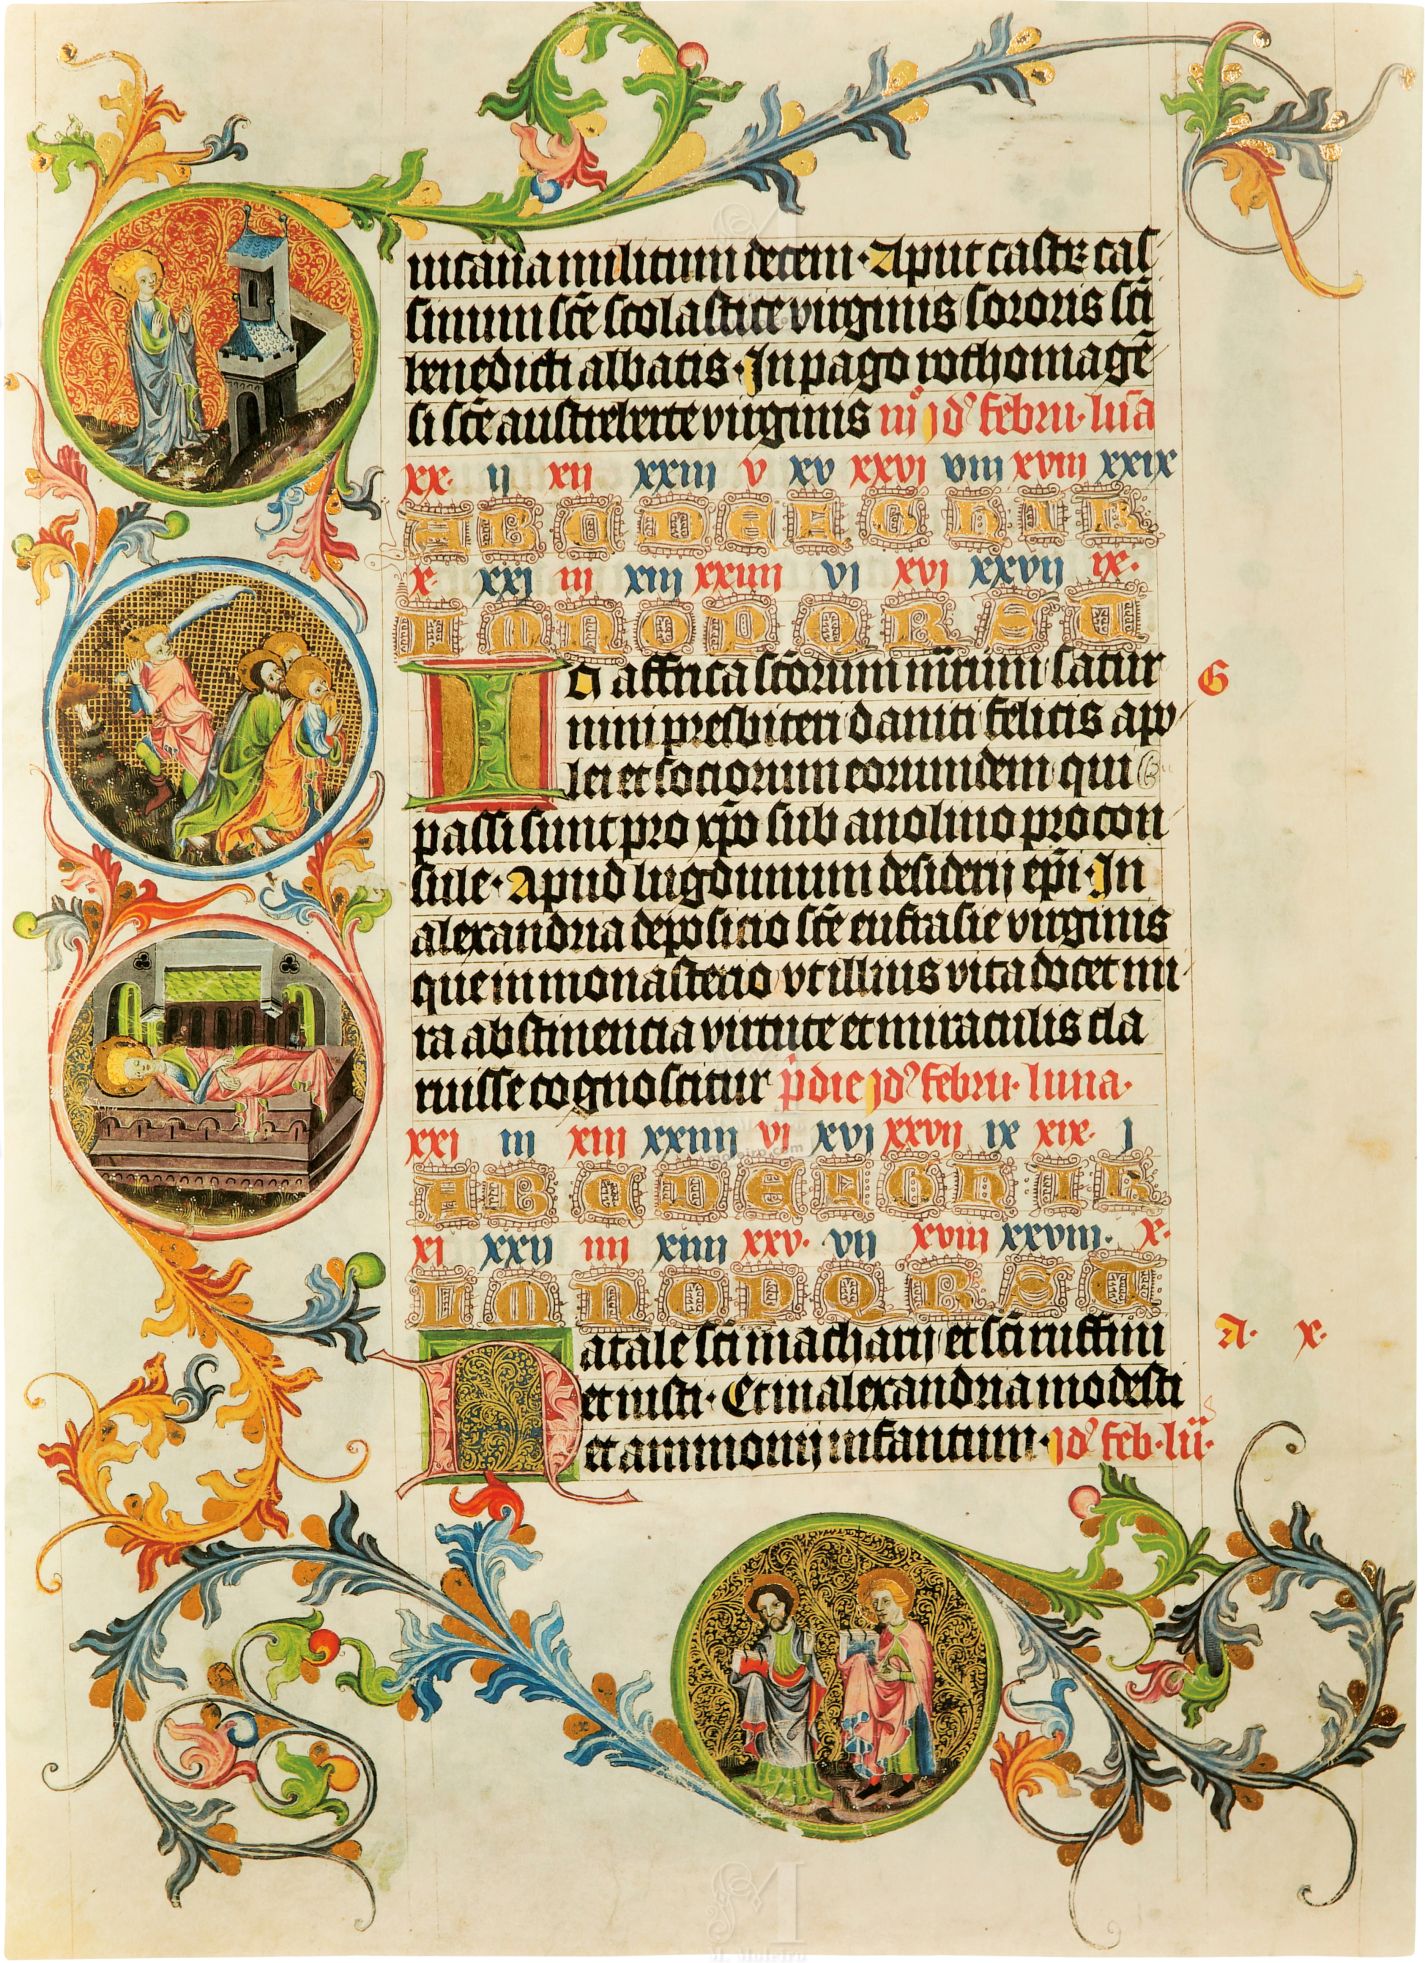 uicana militum decem · Aput castr cas
sinum scē scolastice virginis sororis sci
benedicti abbatis · In pago rothomagē
si scē austreberte virginis iii jd' febru · luna
xx · ii xii xxiii v xv xxvi viii xviii xxix
A B C D E F G H I K
x · xxi iii xiii xxiiii vi xvi xxvii ix ·
L M N O P Q R S T
In affrica scorum mrtirum satur G
nini presbiteri datiui felicis apo
lei et sociorum eorumdem qui
passi sunt pro xpo sub anolino procon
sule · Apud lugdunum desiderij epi · In
alexandria deposicio scē eufrasie virginis
que in monasterio vt illius vita docet mi
ra abstinencia virtute et miraculis cla
ruisse cognoscitur pdie jd' febru · luna ·
xxi iii xiii xxiiii vi xvi xxvii ix xix · j
A B C D E F G H I K
xi xxii iiii xiiii xxv · vii xviii xxviii · x ·
L M N O P Q R S T
Natale sci macharij et sci ruffini A · x ·
et iusti · Et in alexandria modesti
et ammonij infantum · jd' feb · lu ·
M
M. Moleiro